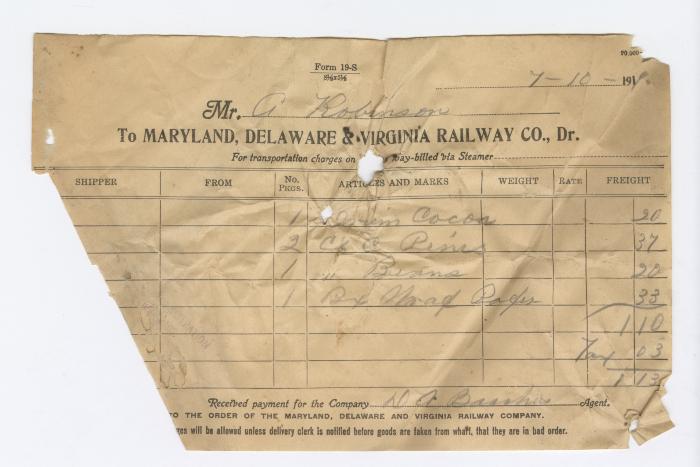 Form 19-S
8½x5½
7-10-191
Mr. A Robinson
To MARYLAND, DELAWARE & VIRGINIA RAILWAY CO., Dr.
For transportation charges on way-billed via Steamer
SHIPPER FROM No. PKGS. ARTICLES AND MARKS WEIGHT RATE FREIGHT
1 Drum Cocoa 20
2 Cs Pines 37
1 " Beans 20
1 Bx Wrap Paper 33
1 10
Tax 03
1 13
Received payment for the Company Agent.
TO THE ORDER OF THE MARYLAND, DELAWARE AND VIRGINIA RAILWAY COMPANY.
ges will be allowed unless delivery clerk is notified before goods are taken from wharf, that they are in bad order.